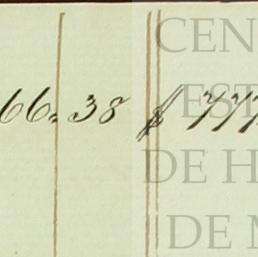 66. 38 $ 777
CEN
EST
DE H
DE M